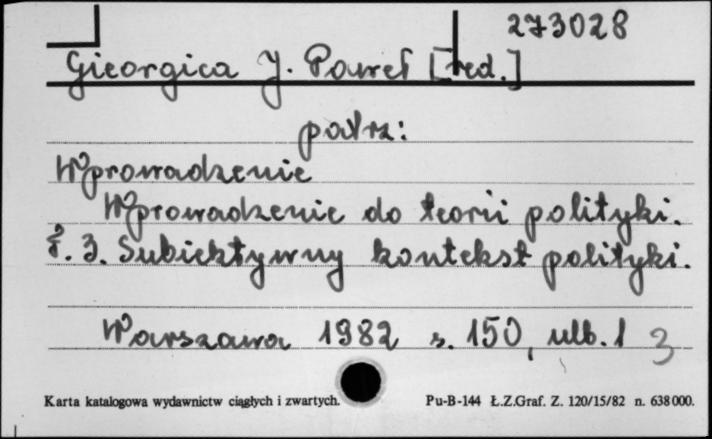 273028
Gieorgica J. Paweł [red.]
patrz:
Wprowadzenie
Wprowadzenie do teorii polityki.
T. 3. Subiektywny kontekst polityki.
Warszawa 1982 s. 150, ulb. 1 3
Karta katalogowa wydawnictw ciągłych i zwartych. Pu-B-144 Ł.Z.Graf. Z. 120/15/82 n. 638000.